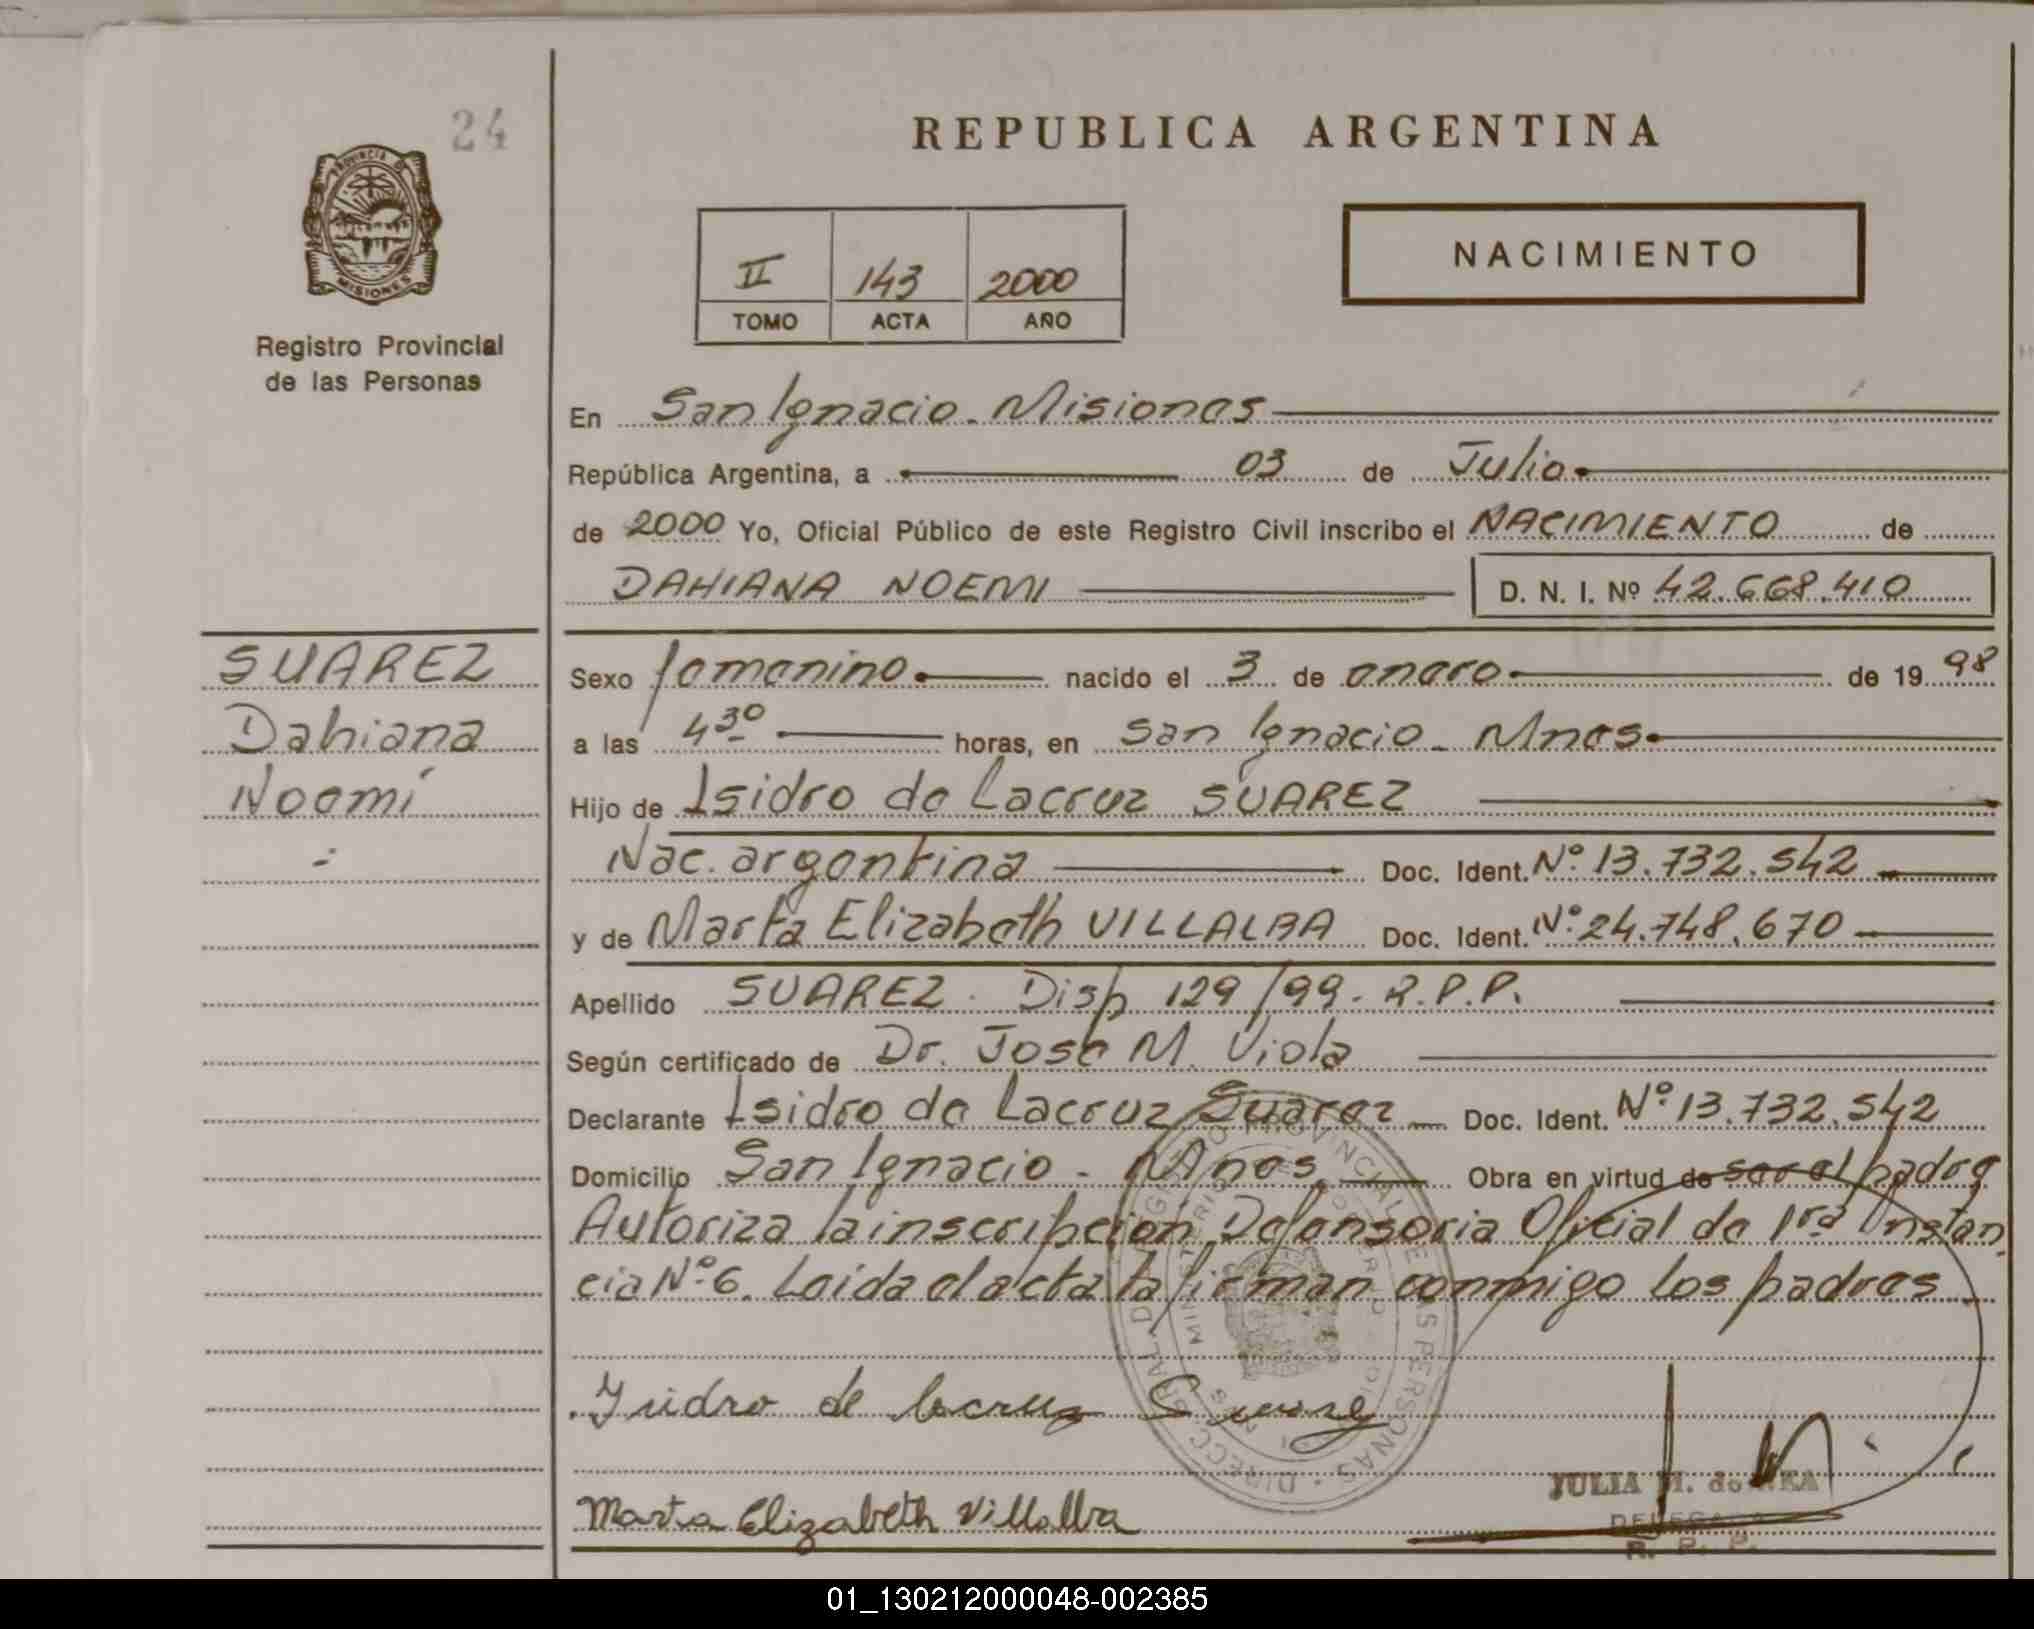 24
PROVINCIA DE
MISIONES
Registro Provincial
de las Personas
SUAREZ
Dahiana
Noemí
REPUBLICA ARGENTINA
II 143 2000
TOMO ACTA AÑO
NACIMIENTO
En San Ignacio - Misiones
República Argentina, a 03 de Julio
de 2000 Yo, Oficial Público de este Registro Civil inscribo el NACIMIENTO de
DAHIANA NOEMI D. N. I. Nº 42.668.410
Sexo femenino nacido el 3 de enero de 1998
a las 4 30 horas, en San Ignacio - Mnes
Hijo de Isidro de Lacruz SUAREZ
Nac. argentina Doc. Ident. Nº 13.732.542
y de Marta Elizabeth VILLALBA Doc. Ident. Nº 24.748.670
Apellido SUAREZ. Disp 129/99. R.P.P.
Según certificado de Dr. Jose M. Viola
Declarante Isidro de Lacruz Suarez Doc. Ident. Nº 13.732.542
Domicilio San Ignacio - Mnes. Obra en virtud de ser el padre
Autoriza la inscripcion Defensoria Oficial de 1ra Instan
cia Nº 6. Leida el acta la firman conmigo los padres
Isidro de lacruz Suarez
Marta Elizabeth Villalba
JULIA M. de
DELEGADA
R. P. P.
01_130212000048-002385